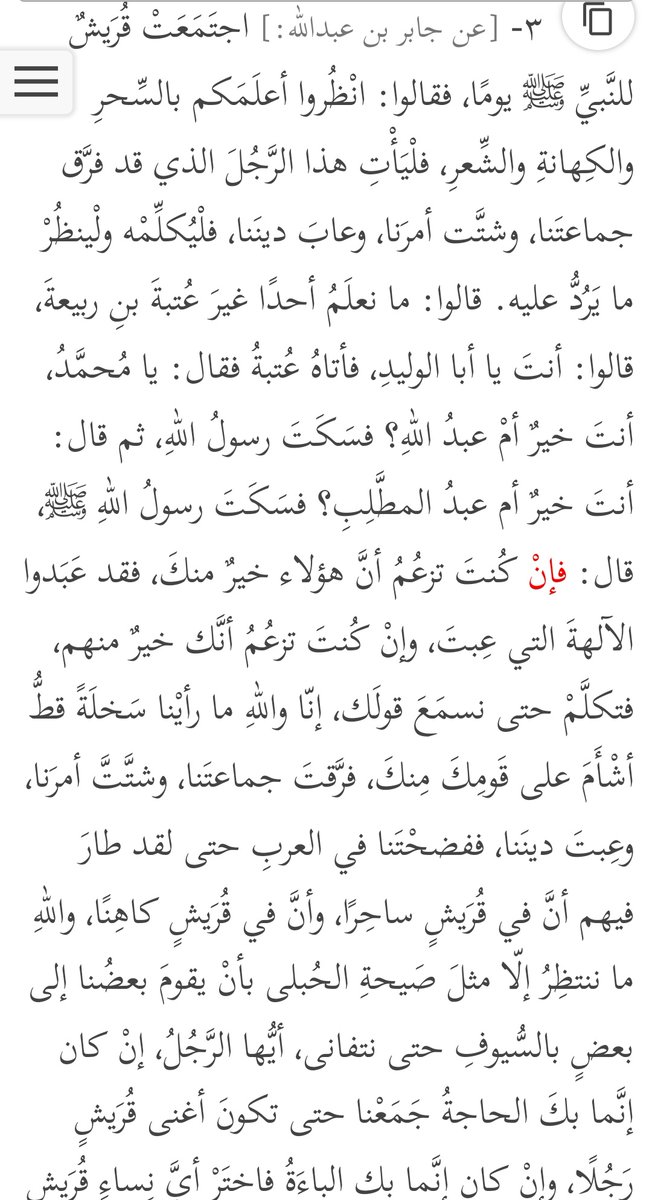 ٣- [عن جابر بن عبدالله:] اجتَمَعَتْ قُرَيشٌ
للنَّبيِّ ﷺ يومًا، فقالوا: انْظُروا أعلَمَكم بالسِّحرِ
والكِهانةِ والشِّعرِ، فلْيَأْتِ هذا الرَّجُلَ الذي قد فرَّق
جماعتَنا، وشتَّت أمرَنا، وعابَ دينَنا، فلْيُكلِّمْه ولْينظُرْ
ما يَرُدُّ عليه. قالوا: ما نعلَمُ أحدًا غيرَ عُتبةَ بنِ ربيعةَ،
قالوا: أنتَ يا أبا الوليدِ، فأتاهُ عُتبةُ فقال: يا مُحمَّدُ،
أنتَ خيرٌ أمْ عبدُ اللهِ؟ فسَكَتَ رسولُ اللهِ، ثم قال:
أنتَ خيرٌ أم عبدُ المطَّلِبِ؟ فسَكَتَ رسولُ اللهِ ﷺ،
قال: فإنْ كُنتَ تزعُمُ أنَّ هؤلاء خيرٌ منكَ، فقد عَبَدوا
الآلهةَ التي عِبتَ، وإنْ كُنتَ تزعُمُ أنَّك خيرٌ منهم،
فتكلَّمْ حتى نسمَعَ قولَك، إنّا واللهِ ما رأيْنا سَخلَةً قطُّ
أشْأَمَ على قَومِكَ مِنكَ، فرَّقتَ جماعتَنا، وشتَّتَّ أمرَنا،
وعِبتَ دينَنا، ففضحْتَنا في العربِ حتى لقد طارَ
فيهم أنَّ في قُرَيشٍ ساحِرًا، وأنَّ في قُرَيشٍ كاهِنًا، واللهِ
ما ننتظِرُ إلّا مثلَ صَيحةِ الحُبلى بأنْ يقومَ بعضُنا إلى
بعضٍ بالسُّيوفِ حتى نتفانى، أيُّها الرَّجُلُ، إنْ كان
إنَّما بكَ الحاجةُ جَمَعْنا حتى تكونَ أغنى قُرَيشٍ
رَجُلًا، وإنْ كان إنَّما بك الباءَةُ فاختَرْ أيَّ نِساءِ قُرَيشٍ